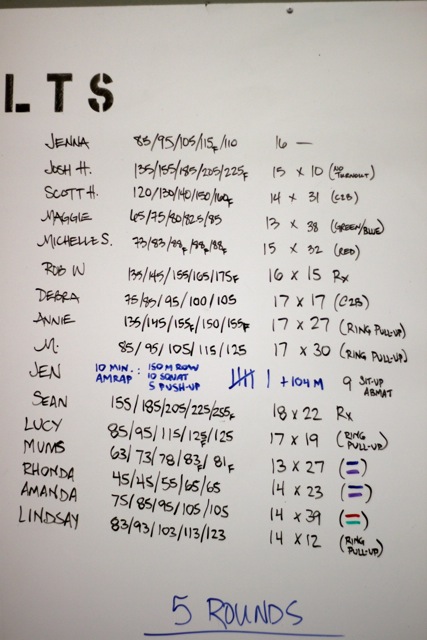 LTS
JENNA 85/95/105/115F/110 16 —
JOSH H. 135/155/185/205/225F 15 x 10 (NO TURNOUT)
SCOTT H. 120/130/140/150/160F 14 x 31 (C2B)
MAGGIE 65/75/80/825/85 13 x 38 (GREEN/BLUE)
MICHELLE S. 73/83/88F/88F/88F 15 x 32 (RED)
ROB W 135/145/155/165/175F 16 x 15 Rx
DEBRA 75/85/95/100/105 17 x 17 (C2B)
ANNIE 135/145/155F/150/155F 17 x 27 (RING PULL-UP)
M. 85/95/105/115/125 17 x 30 (RING PULL-UP)
JEN 10 MIN. AMRAP : 150 M ROW 10 SQUAT 5 PUSH-UP 1 + 104 M 9 SIT-UP ABMAT
SEAN 155/185/205/225/255F 18 x 22 Rx
LUCY 85/95/115/125F/125 17 x 19 (RING PULL-UP)
MUMS 63/73/78/83F/81F 13 x 27 (=)
RHONDA 45/45/55/65/65 14 x 23 (=)
AMANDA 75/85/95/105/105 14 x 39 (=)
LINDSAY 83/93/103/113/123 14 x 12 (RING PULL-UP)
5 ROUNDS